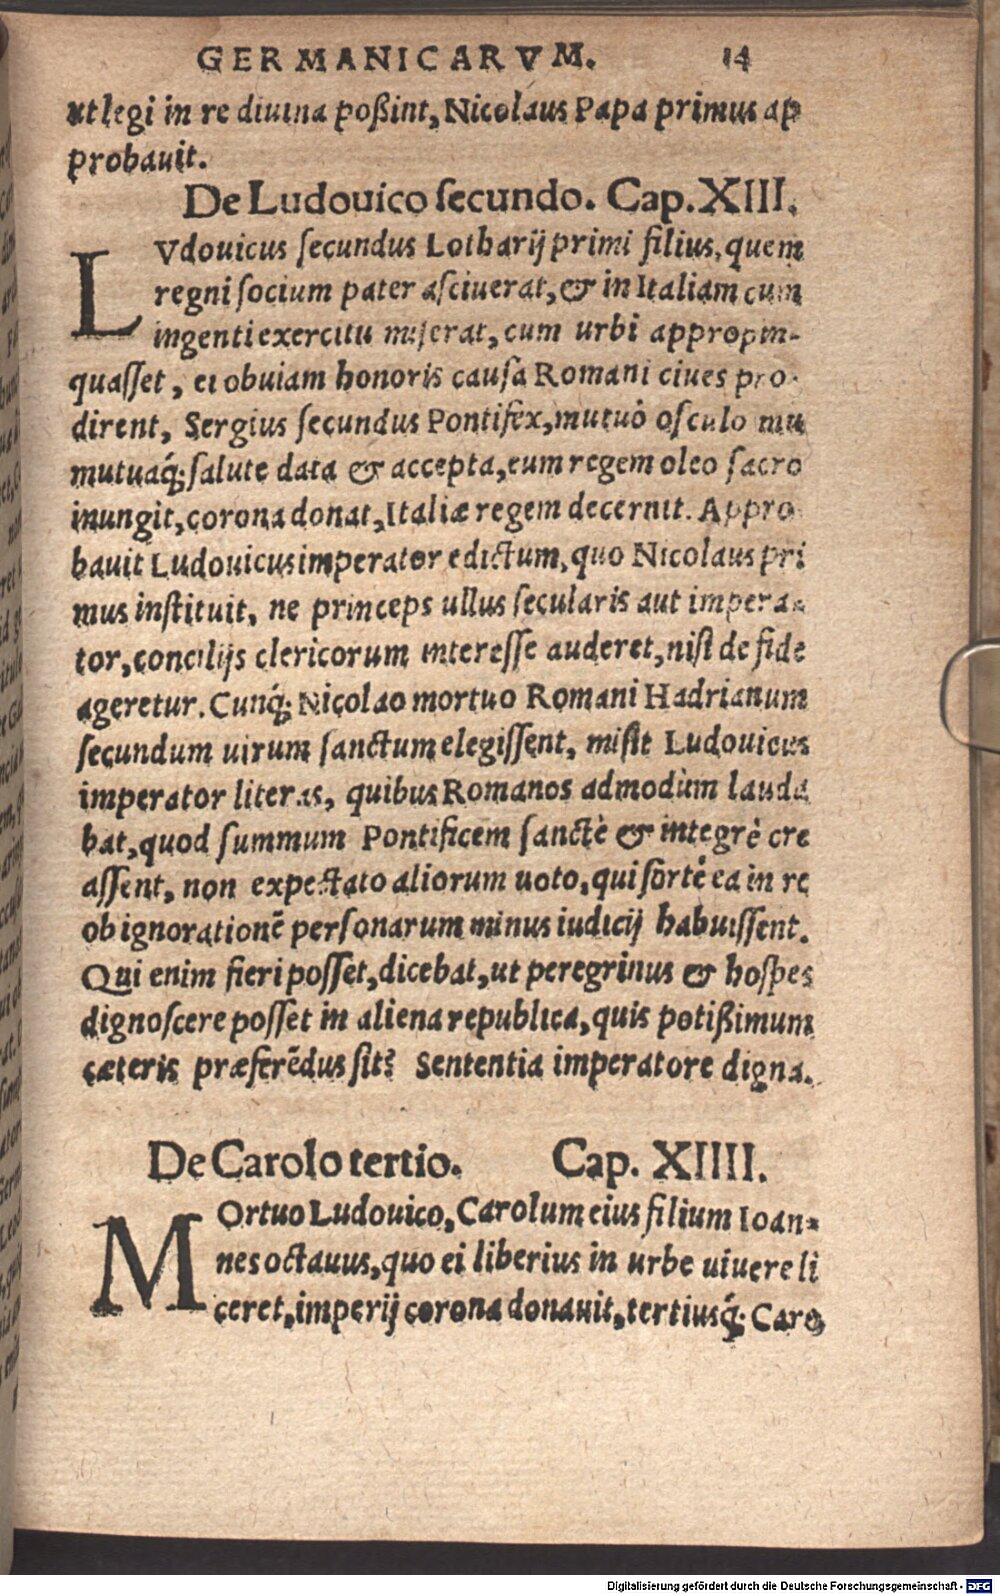 GERMANICARVM. 14
ut legi in re diuina poßint, Nicolaus Papa primus ap
probauit.
De Ludouico secundo. Cap. XIII.
LVdouicus secundus Lotharij primi filius, quem
regni socium pater asciuerat, & in Italiam cum
ingenti exercitu miserat, cum urbi appropin-
quasset, ei obuiam honoris causa Romani ciues pro-
dirent, Sergius secundus Pontifex, mutuò osculo mu
mutuaq́; salute data & accepta, eum regem oleo sacro
inungit, corona donat, Italiæ regem decernit. Appro
bauit Ludouicus imperator edictum, quo Nicolaus pri
mus instituit, ne princeps ullus secularis aut impera-
tor, concilijs clericorum interesse auderet, nisi de fide
ageretur. Cunq́; Nicolao mortuo Romani Hadrianum
secundum uirum sanctum elegissent, misit Ludouicus
imperator literas, quibus Romanos admodùm lauda
bat, quod summum Pontificem sanctè & integrè cre
assent, non expectato aliorum uoto, qui fortè ea in re
ob ignorationē personarum minus iudicij habuissent.
Qui enim fieri posset, dicebat, ut peregrinus & hospes
dignoscere posset in aliena republica, quis potißimum
cæteris præferēdus sit? Sententia imperatore digna.
De Carolo tertio. Cap. XIIII.
MOrtuo Ludouico, Carolum eius filium Ioan-
nes octauus, quo ei liberius in urbe uiuere li
ceret, imperij corona donauit, tertiusq́; Caro
Digitalisierung gefördert durch die Deutsche Forschungsgemeinschaft - DFG